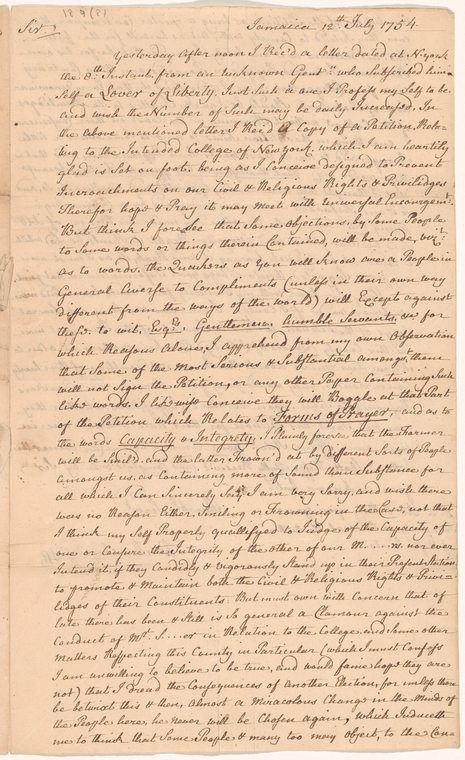 189(8)
Jamaica 12th July 1754
Sir
Yesterday After noon I Rec'd a letter dated at N:York
the 8th Instant: from an unknown Gent:n who Subscribed him-
self a Lover of Liberty. Just such a one I Profess my self to be.
and wish the Number of Such may be daily Increased. In
the above mentioned letter I Rec'd a Copy of a Petition, Rela-
ting to the Intended College of New york, which I am heartily
glad is Set on foot, being as I Conceive designed to Prevent
Incroachments on our Civil & Religious Rights & Priviledges
Therefor hope & Pray it may Meet with Univerful Encouragemt:
But think I foreSee that Some Objections, by Some People
to Some words or things therein Contained, will be made, viz:
as to words. the Quakers as You well know are a People in
General Averse to Compliments (unless in their own way
different from the ways of the world) will Except against
the to wit, Esqrs, Gentlemen, humble Servants, &c for
which Reasons Alone, I apprehend from my own Observation
that Some of the most Serious & Substantial amongst them
will not Sign the Petition, or any other Paper Containing Such
like words. I likewise Conceive they will Boggle at that Part
of the Petition which Relates to Forms of Prayer; and as to
the words Capacity & Integrety, I Plainly foresee that the Former
will be Smil'd. and the latter Frown'd at by different Sorts of People
amongst us. as Containing more of Sound than Substance for
all which I Can Sincerely Say I am very Sorry, and wish there
was no Reason Either, Smiling or Frowning in the Case, not that
I think my Self Properly quallifyed to Judge of the Capacity of
one or Censure the Integrity of the other of our M.....rs nor ever
Intend it, if they Candedly & vigorously Stand up in their Present Station
to promote & Maintain both the Civil & Religious Rights & Privi-
ledges of their Constituents. But must own with Concern that of
late there has been & Still is So general a Clamour against the
Conduct of Mr. S....or in Relation to the College and Some other
Matters Respecting this County in Particular (which I must Confess
I am unwilling to believe to be true, and would fame hope they are
not) that I dread the Consequences of another Election, for unless there
be betwixt this & then, almost a Miraculous Change in the Minds of
the People here, he never will be Chosen again, which Induceth
me to think that Some People & many too may Object, to the Con=